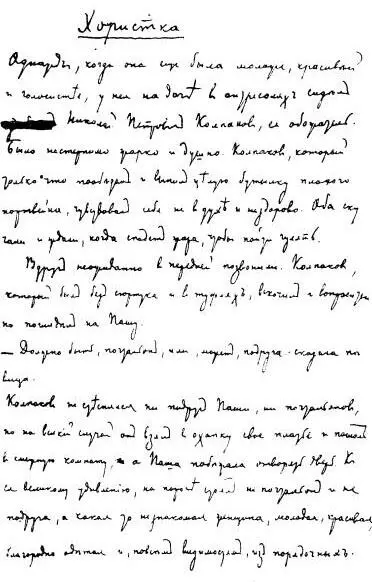 Хористка
Однажды, когда она еще была моложе, красивее
и голосистѣе, у нея на дачѣ въ антресоляхъ сидѣлъ
Николай Петровичъ Колпаковъ, ея обожатель.
Было нестерпимо жарко и душно. Колпаковъ, который
только что пообѣдалъ и выпилъ цѣлую бутылку плохого
портвейна, чувствовалъ себя не въ духѣ и нездорово. Оба ску
чали и ждали, когда спадетъ жара, чтобы пойти гулять.
Вдругъ неожиданно въ передней позвонили. Колпаковъ,
который былъ безъ сюртука и въ туфляхъ, вскочилъ и вопроситель
но поглядѣлъ на Пашу.
— Должно быть, почтальонъ, или, можетъ, подруга - сказала пѣ
вица.
Колпаковъ не стѣснялся ни подругъ Паши, ни почтальоновъ,
но на всякій случай взялъ въ охапку свое платье и пошелъ
въ смежную комнату, а Паша побѣжала отворять дверь. Къ
ея великому удивленію, на порогѣ стоялъ не почтальонъ и не
подруга, а какая то незнакомая женщина, молодая, красивая,
благородно одѣтая и, по всѣмъ видимостямъ, изъ порядочныхъ.